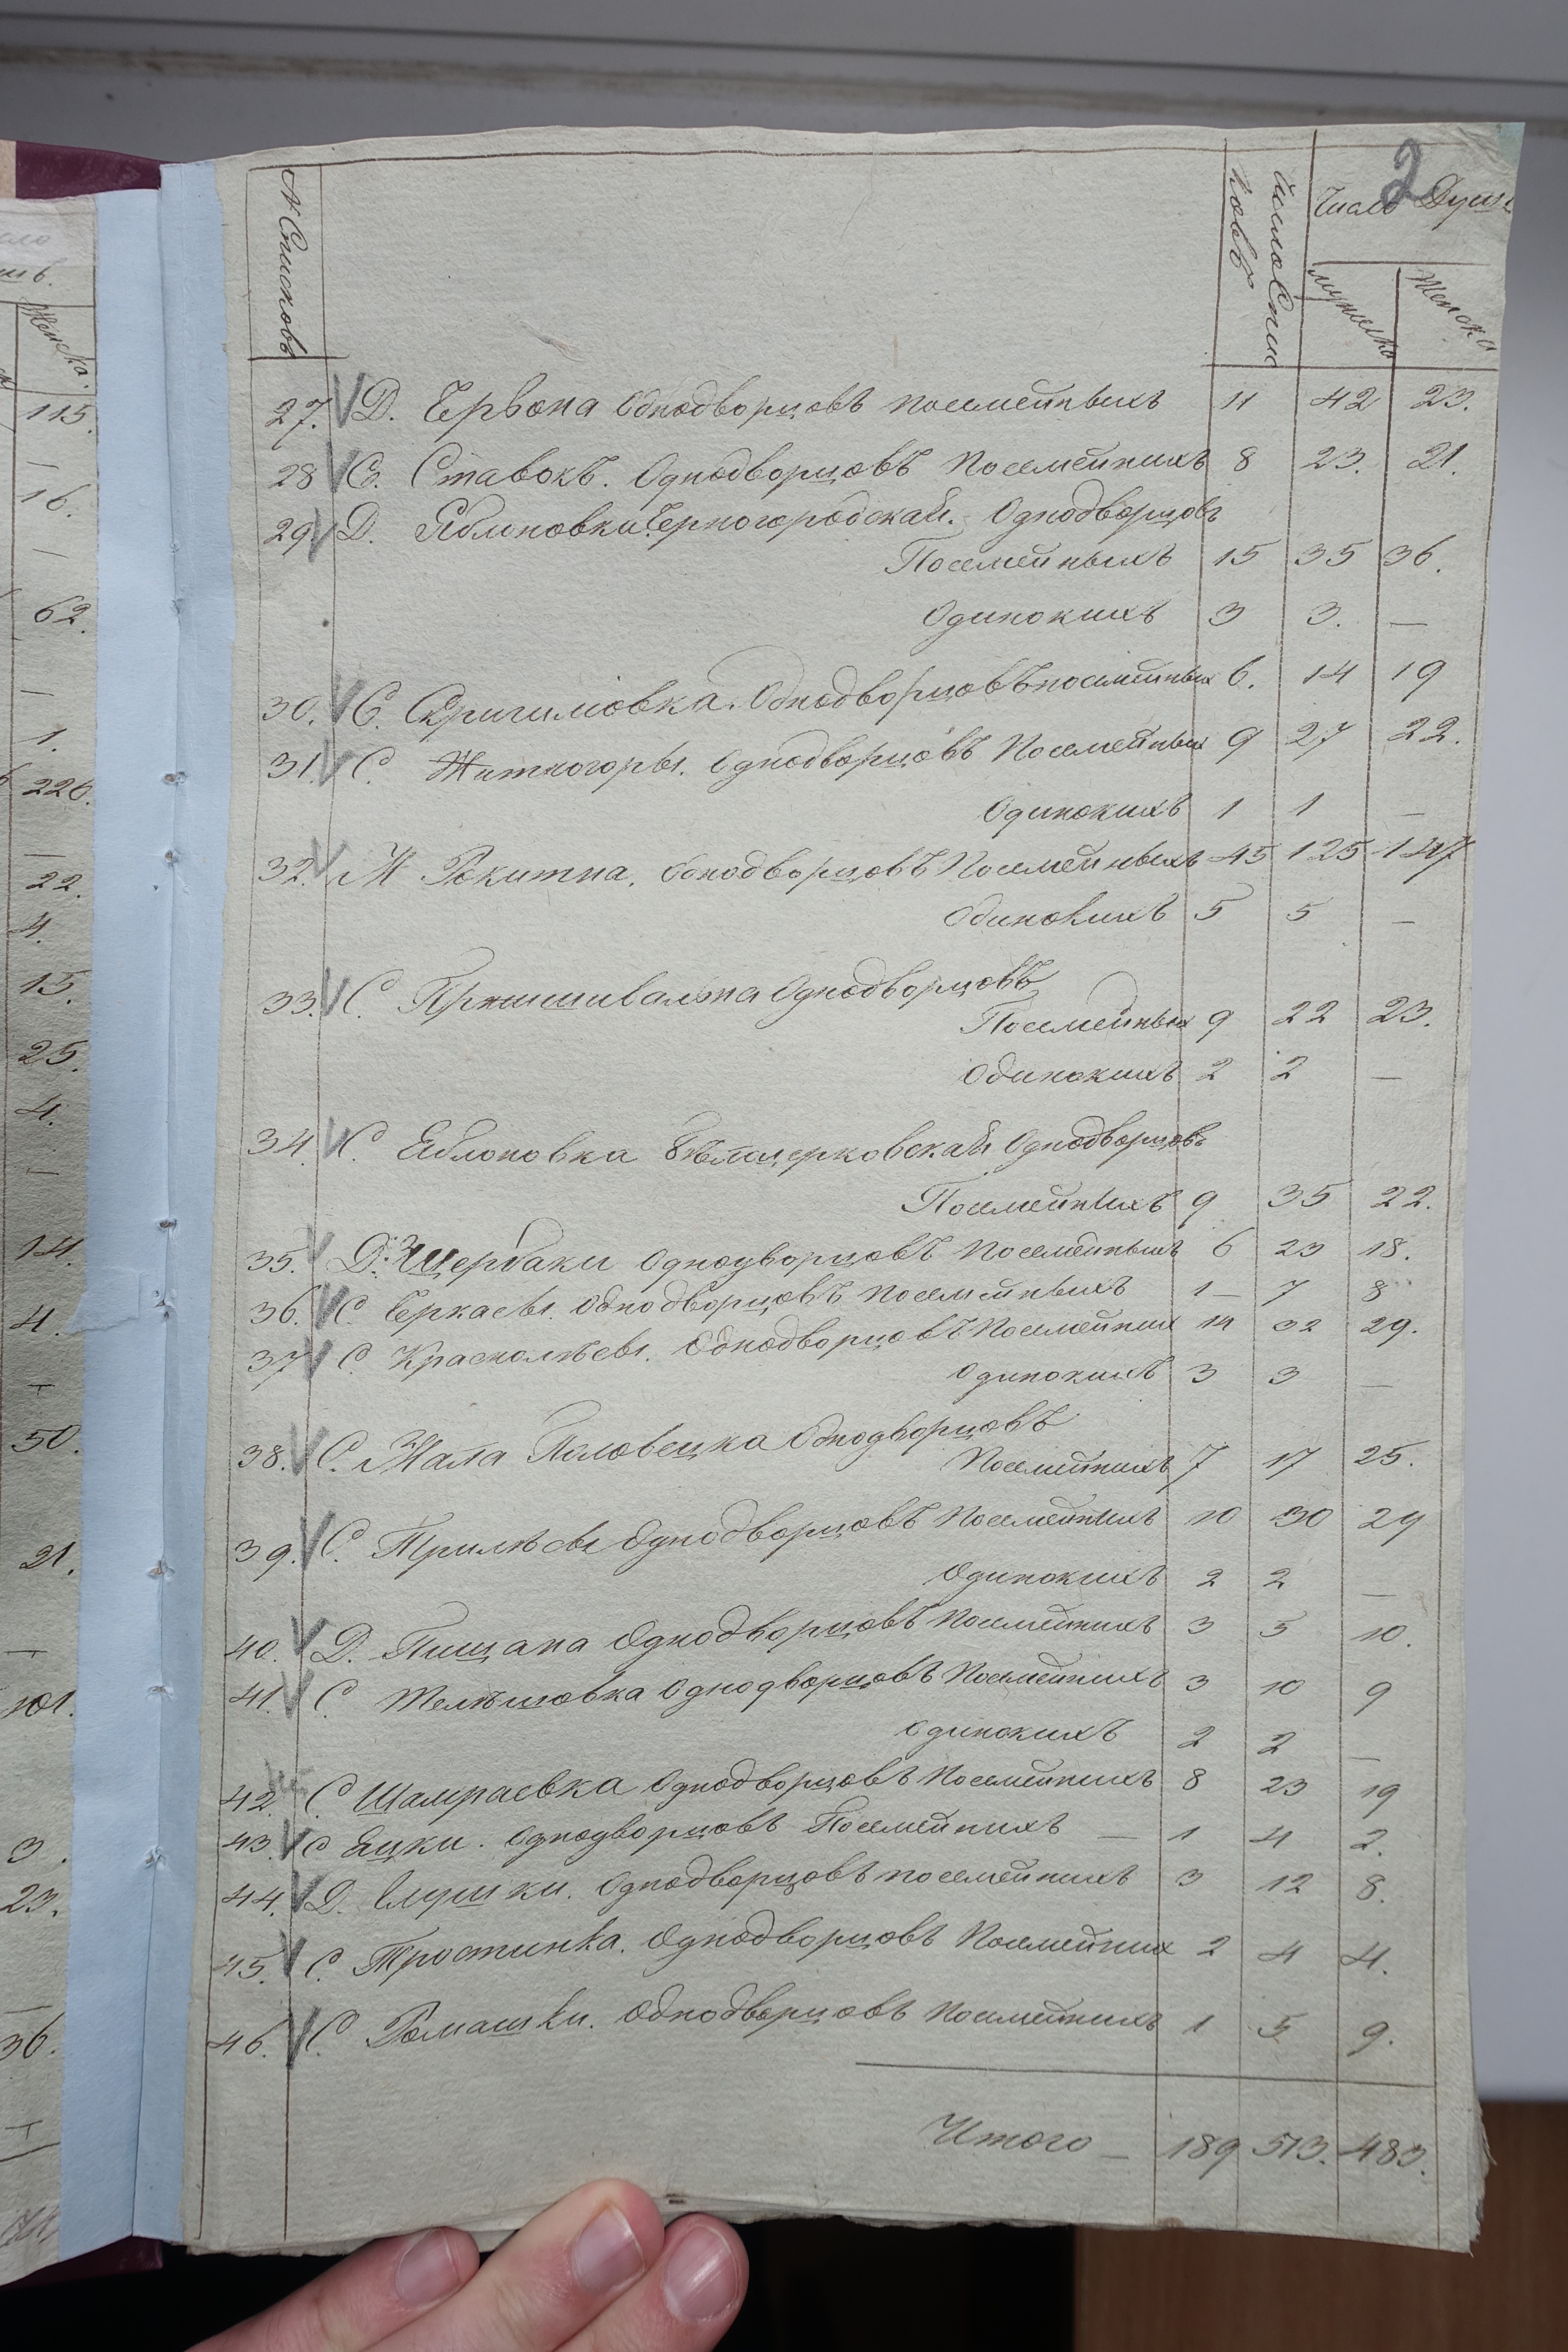 2
№ Списковъ
Число Спис
ковъ
Число Душъ
мужеска
Женска
27. Д. Червона Однодворцовъ посемейныхъ 11 42 23.
28 С. Ставокъ. Однодворцовъ Посемейныхъ 8 23. 21.
29. Д. Яблоновки Черногородской. Однодворцовъ
Посемейныхъ 15 35 36.
Одинокихъ 3 3. —
30. С. Ольшиовка. Однодворцовъ посемейных 6. 14 19
31. С. Житногоры. Однодворцовъ Посемейных 9 27 22.
Одинокихъ 1 1 —
32. М Рокитна. Однодворцовъ Посемейныхъ 45 125 147
Одинокихъ 5 5 —
33. С. Пришивальна Однодворцовъ
Посемейных 9 22 23.
Одинокихъ 2 2 —
34. С. Яблоновка Бѣлоцерковская Однодворцовъ
Посемейныхъ 9 35 22.
35. Д. Щербаки Однодворцовъ Посемейныхъ 6 23 18.
36. С. Черкасы. Однодворцовъ Посемейныхъ 1 — 7 8
37 С. Краснолѣсы. Однодворцовъ Посемейных 14 32 29.
Одинокихъ 3 3 —
38. С. Мала Половецка Однодворцовъ
Посемейныхъ 7 17 25.
39. С. Трилѣсы Однодворцовъ Посемейныхъ 10 30 29
Одинокихъ 2 2 —
40. Д. Пищана Однодворцовъ Посемейныхъ 3 5 10.
41. С. Телѣшовка Однодворцовъ Посемейныхъ 3 10 9
Одинокихъ 2 2 —
42. С Шамраевка Однодворцовъ Посемейныхъ 8 23 19
43. С Яцки. Однодворцовъ Посемейныхъ — 1 4 2.
44. Д. Однодворцовъ посемейныхъ 3 12 8.
45. С. Тростинка. Однодворцовъ Посемейных 2 4 4.
46. С. Ромашки. Однодворцовъ Посемейныхъ 1 5 9.
Итого — 189 513. 483.
Женска.
115.
—
16.
—
62.
—
1.
226.
—
22.
4.
15.
25.
4.
—
14.
4.
—
50.
21.
—
101.
3.
23.
—
36.
—